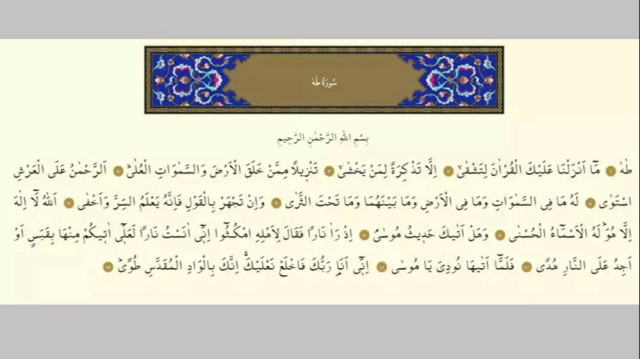 سُورَةُ طٰهٰ
بِسْمِ اللّٰهِ الرَّحْمٰنِ الرَّحٖيمِ
طٰهٰ ۞ مَٓا اَنْزَلْنَا عَلَيْكَ الْقُرْاٰنَ لِتَشْقٰىۙ ۞ اِلَّا تَذْكِرَةً لِمَنْ يَخْشٰىۙ ۞ تَنْزٖيلاً مِمَّنْ خَلَقَ الْاَرْضَ وَالسَّمٰوَاتِ الْعُلٰىؕ ۞ اَلرَّحْمٰنُ عَلَى الْعَرْشِ
اسْتَوٰى ۞ لَهُ مَا فِى السَّمٰوَاتِ وَمَا فِى الْاَرْضِ وَمَا بَيْنَهُمَا وَمَا تَحْتَ الثَّرٰى ۞ وَاِنْ تَجْهَرْ بِالْقَوْلِ فَاِنَّهُ يَعْلَمُ السِّرَّ وَاَخْفٰى ۞ اَللّٰهُ لَٓا اِلٰهَ
اِلَّا هُوَؕ لَهُ الْاَسْمَٓاءُ الْحُسْنٰى ۞ وَهَلْ اَتٰيكَ حَدٖيثُ مُوسٰىۘ ۞ اِذْ رَاٰ نَاراً فَقَالَ لِاَهْلِهِ امْكُثُٓوا اِنّٖٓى اٰنَسْتُ نَاراً لَعَلّٖٓى اٰتٖيكُمْ مِنْهَا بِقَبَسٍ اَوْ
اَجِدُ عَلَى النَّارِ هُدًى ۞ فَلَمَّٓا اَتٰيهَا نُودِىَ يَا مُوسٰى ۞ اِنّٖٓى اَنَا۬ رَبُّكَ فَاخْلَعْ نَعْلَيْكَۚ اِنَّكَ بِالْوَادِ الْمُقَدَّسِ طُوًىؕ ۞